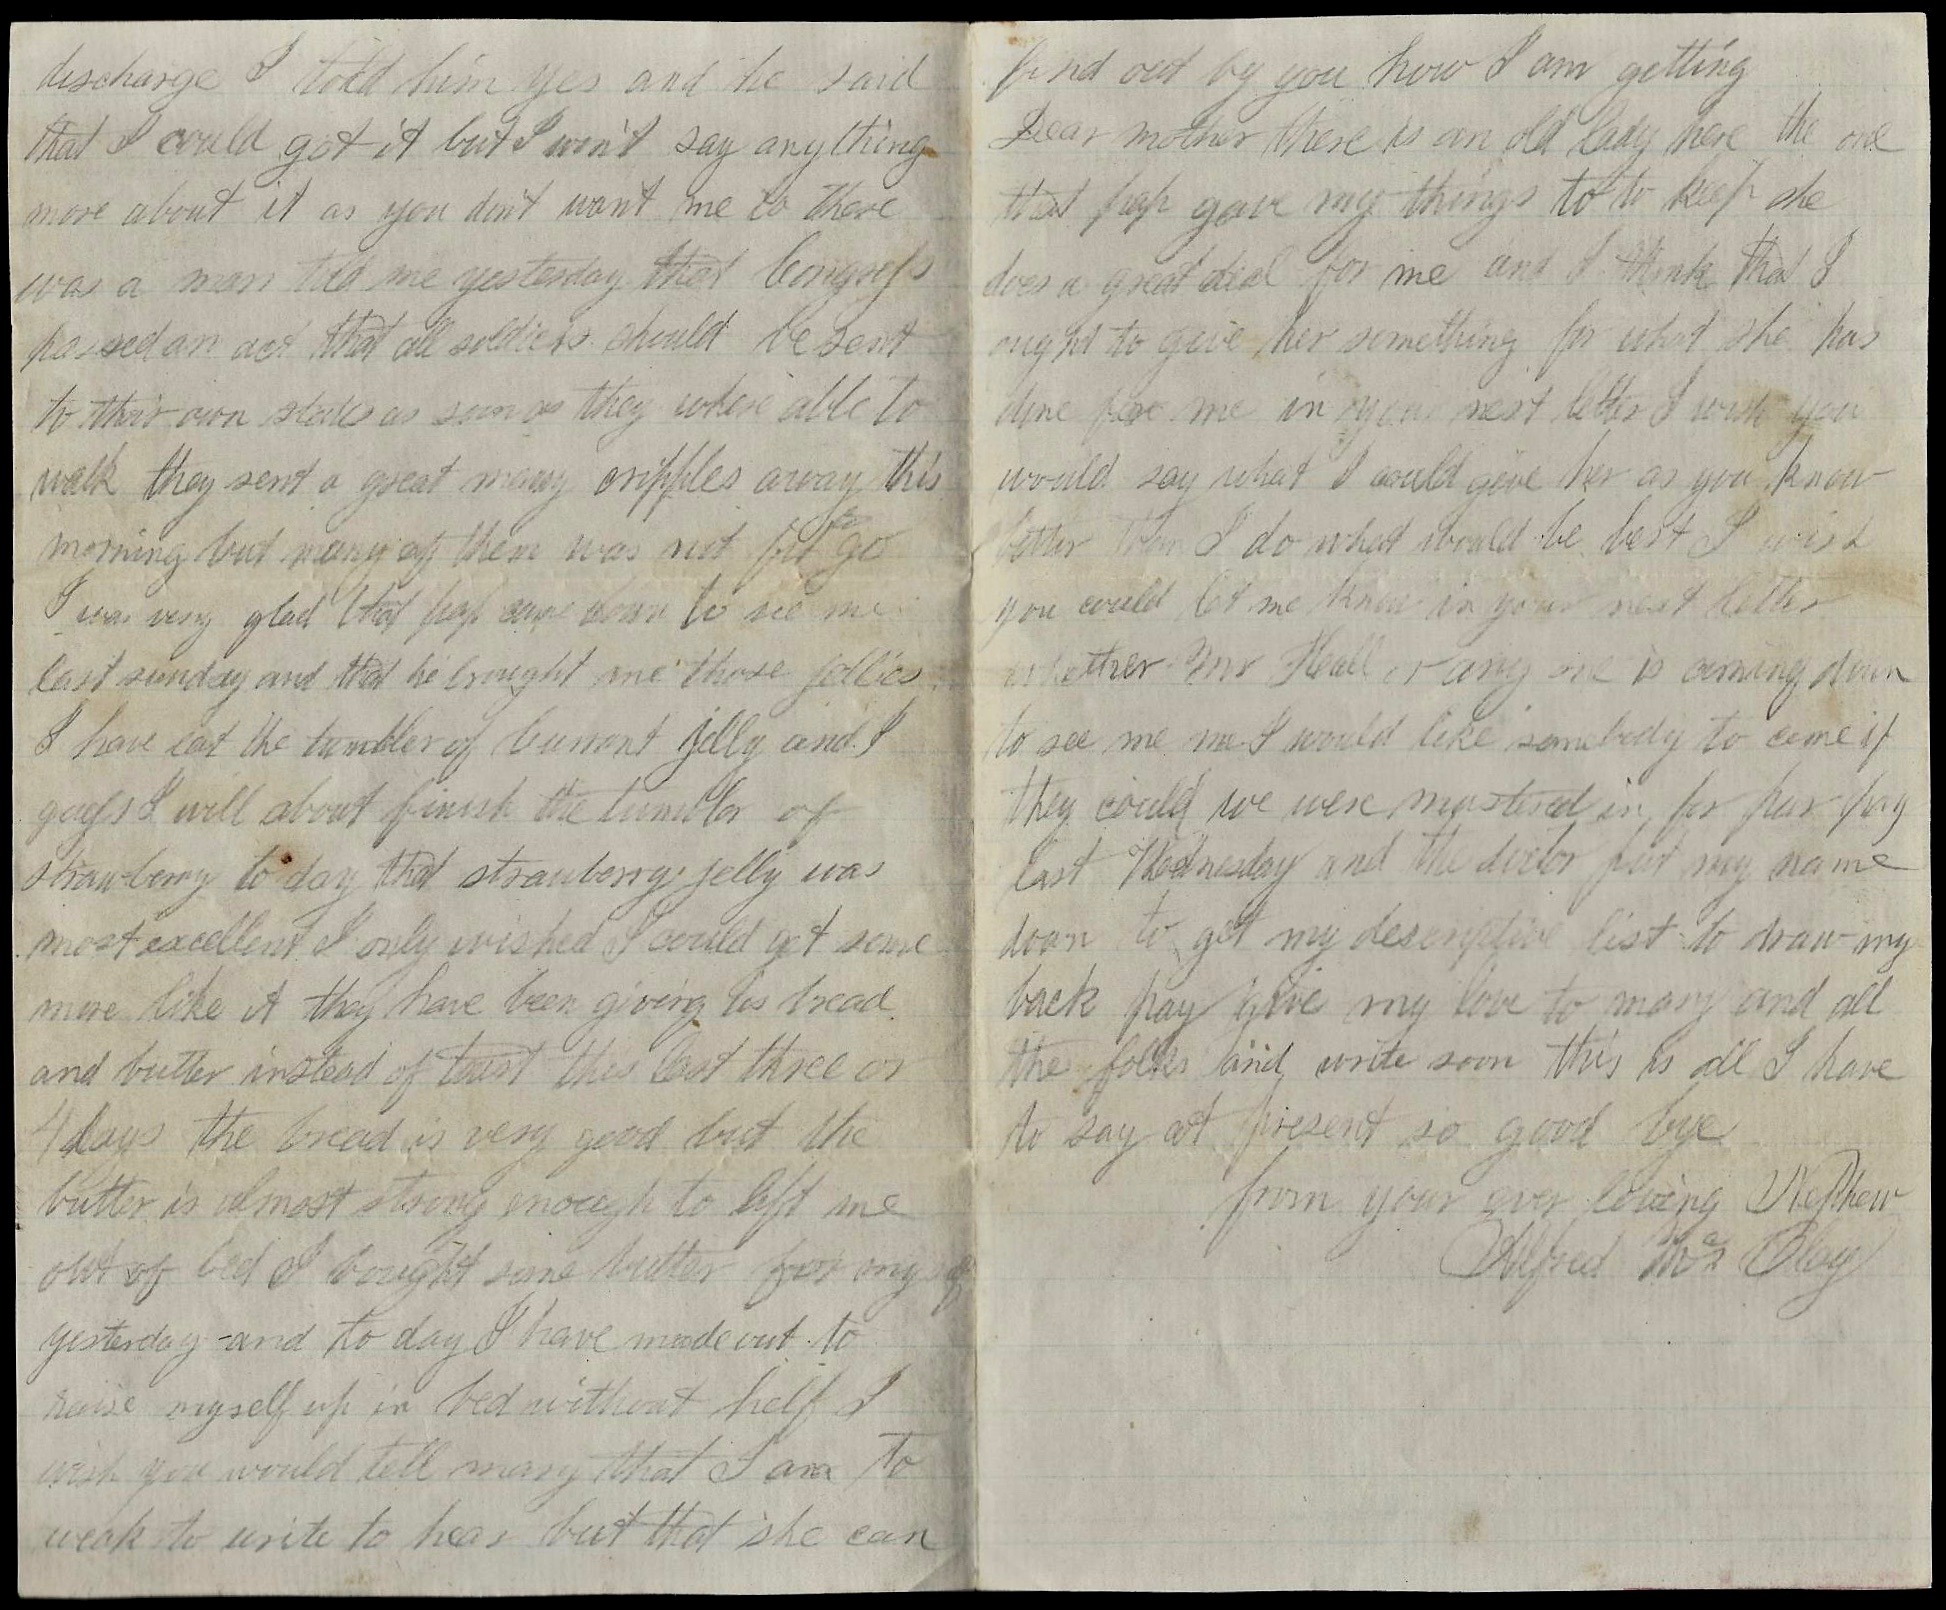 discharge I told him yes and he said
that I could get it but I won't say anything
more about it as you don't want me to there
was a man told me yesterday that Congress
passed an act that all soldiers should be sent
to their own states as soon as they where able to
walk they sent a great many cripples away this
morning but many of them was not fit to go
I was very glad that pap came down to see me
last sunday and that he brought me those jellies
I have eat the tumbler of Currant jelly and I
guess I will about finish the tumbler of
strawberry to day that strawberry jelly was
most excellent I only wished I could get some
more like it they have been giving us bread
and butter instead of toast this last three or
4 days the bread is very good but the
butter is almost strong enough to lift me
out of bed I bought some butter for myself
yesterday and to day I have made out to
raise myself up in bed without help I
wish you would tell mary that I am to
weak to write to hear but that she can
find out by you how I am getting
Dear mother there is an old lady here the one
that pap gave my things to to keep she
does a great deal for me and I think that I
ought to give her something for what she has
done for me in your next letter I wish you
would say what I could give her as you know
better than I do what would be best I wish
you could let me know in your next letter
whether Mr Heall or any one is coming down
to see me me I would like somebody to come if
they could we were mustered in for pay
last Wednesday and the doctor put my name
down to get my descriptive list to draw my
back pay give my love to mary and all
the folks and write soon this is all I have
to say at present so good bye
from your ever loving Nephew
Alfred Mc Clay